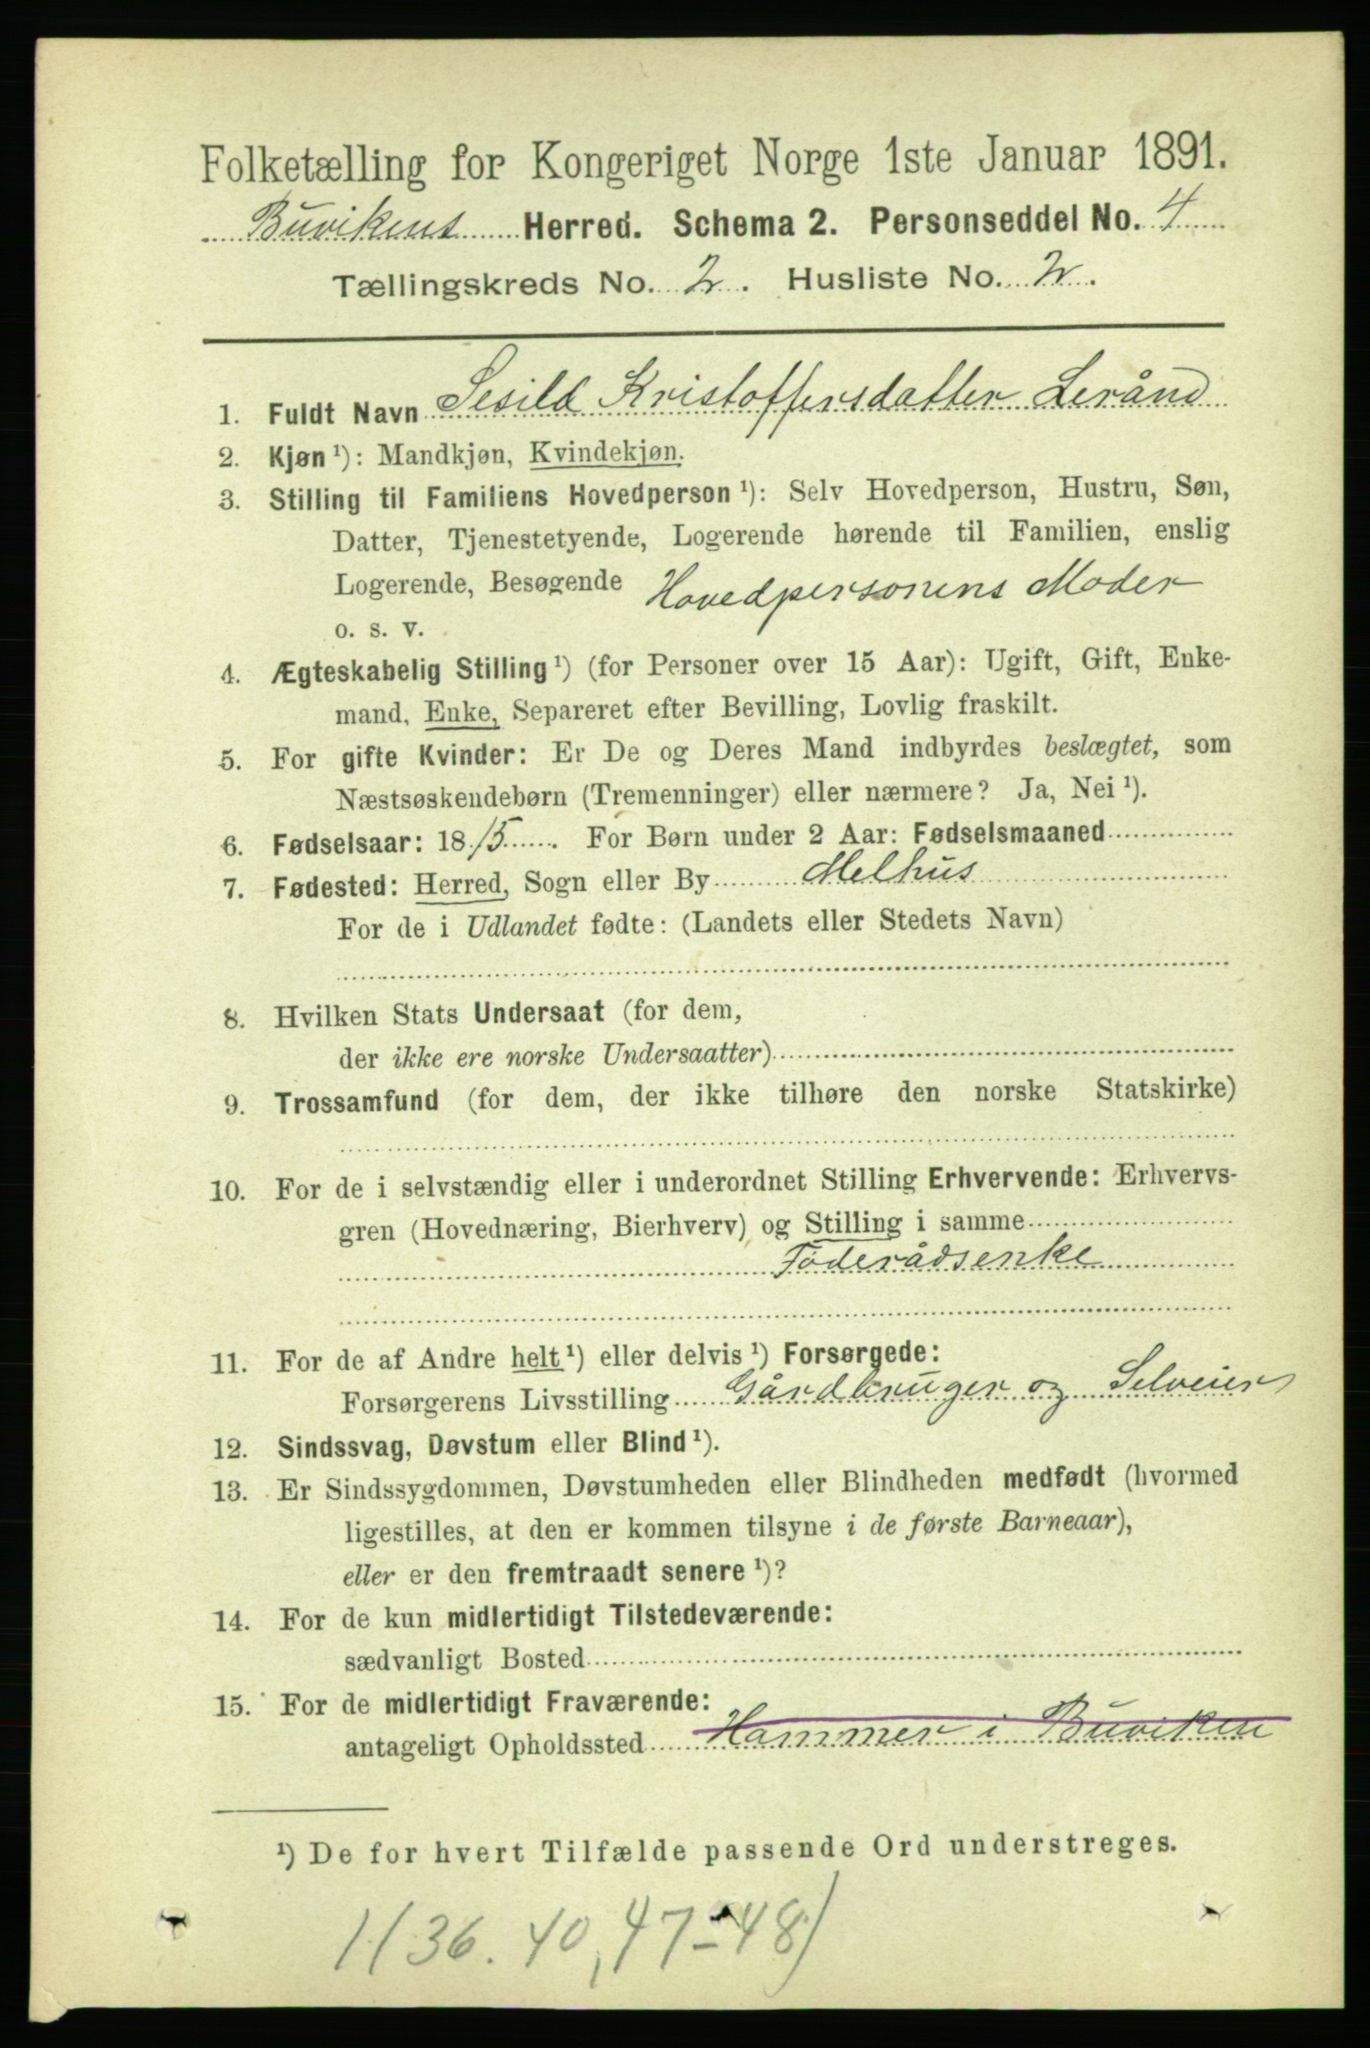 Folketælling for Kongeriget Norge 1ste Januar 1891.
Buvikens Herred. Schema 2. Personseddel No. 4
Tællingskreds No. 2. Husliste No. 2.
1. Fuldt Navn Sesild Kristoffersdatter Lerånd
2. Kjøn ¹): Mandkjøn, Kvindekjøn.
3. Stilling til Familiens Hovedperson ¹): Selv Hovedperson, Hustru, Søn,
Datter, Tjenestetyende, Logerende hørende til Familien, enslig
Logerende, Besøgende Hovedpersonens Moder
o. s. v.
4. Ægteskabelig Stilling ¹) (for Personer over 15 Aar): Ugift, Gift, Enke-
mand, Enke, Separeret efter Bevilling, Lovlig fraskilt.
5. For gifte Kvinder: Er De og Deres Mand indbyrdes beslægtet, som
Næstsøskendebørn (Tremenninger) eller nærmere? Ja, Nei ¹).
6. Fødselsaar: 1815. For Børn under 2 Aar: Fødselsmaaned
7. Fødested: Herred, Sogn eller By Melhus
For de i Udlandet fødte: (Landets eller Stedets Navn)
8. Hvilken Stats Undersaat (for dem,
der ikke ere norske Undersaatter)
9. Trossamfund (for dem, der ikke tilhøre den norske Statskirke)
10. For de i selvstændig eller i underordnet Stilling Erhvervende: Erhvervs-
gren (Hovednæring, Bierhverv) og Stilling i samme
Føderådsenke
11. For de af Andre helt ¹) eller delvis ¹) Forsørgede:
Forsørgerens Livsstilling Gårdbruger og Selveier
12. Sindssvag, Døvstum eller Blind ¹).
13. Er Sindssygdommen, Døvstumheden eller Blindheden medfødt (hvormed
ligestilles, at den er kommen tilsyne i de første Barneaar),
eller er den fremtraadt senere ¹)?
14. For de kun midlertidigt Tilstedeværende:
sædvanligt Bosted
15. For de midlertidigt Fraværende:
antageligt Opholdssted Hammer i Buviken
¹) De for hvert Tilfælde passende Ord understreges.
1(36. 40, 47-48)